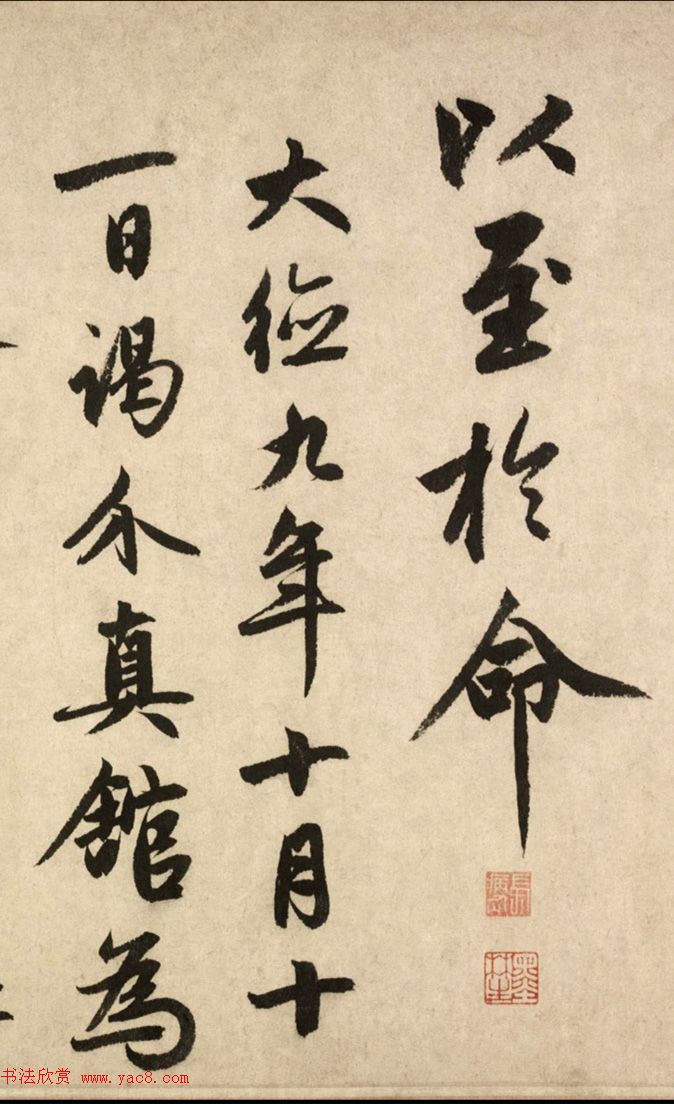 以至於命
大德九年十月十
一日謁介真館為
书法欣赏 www.yac8.com